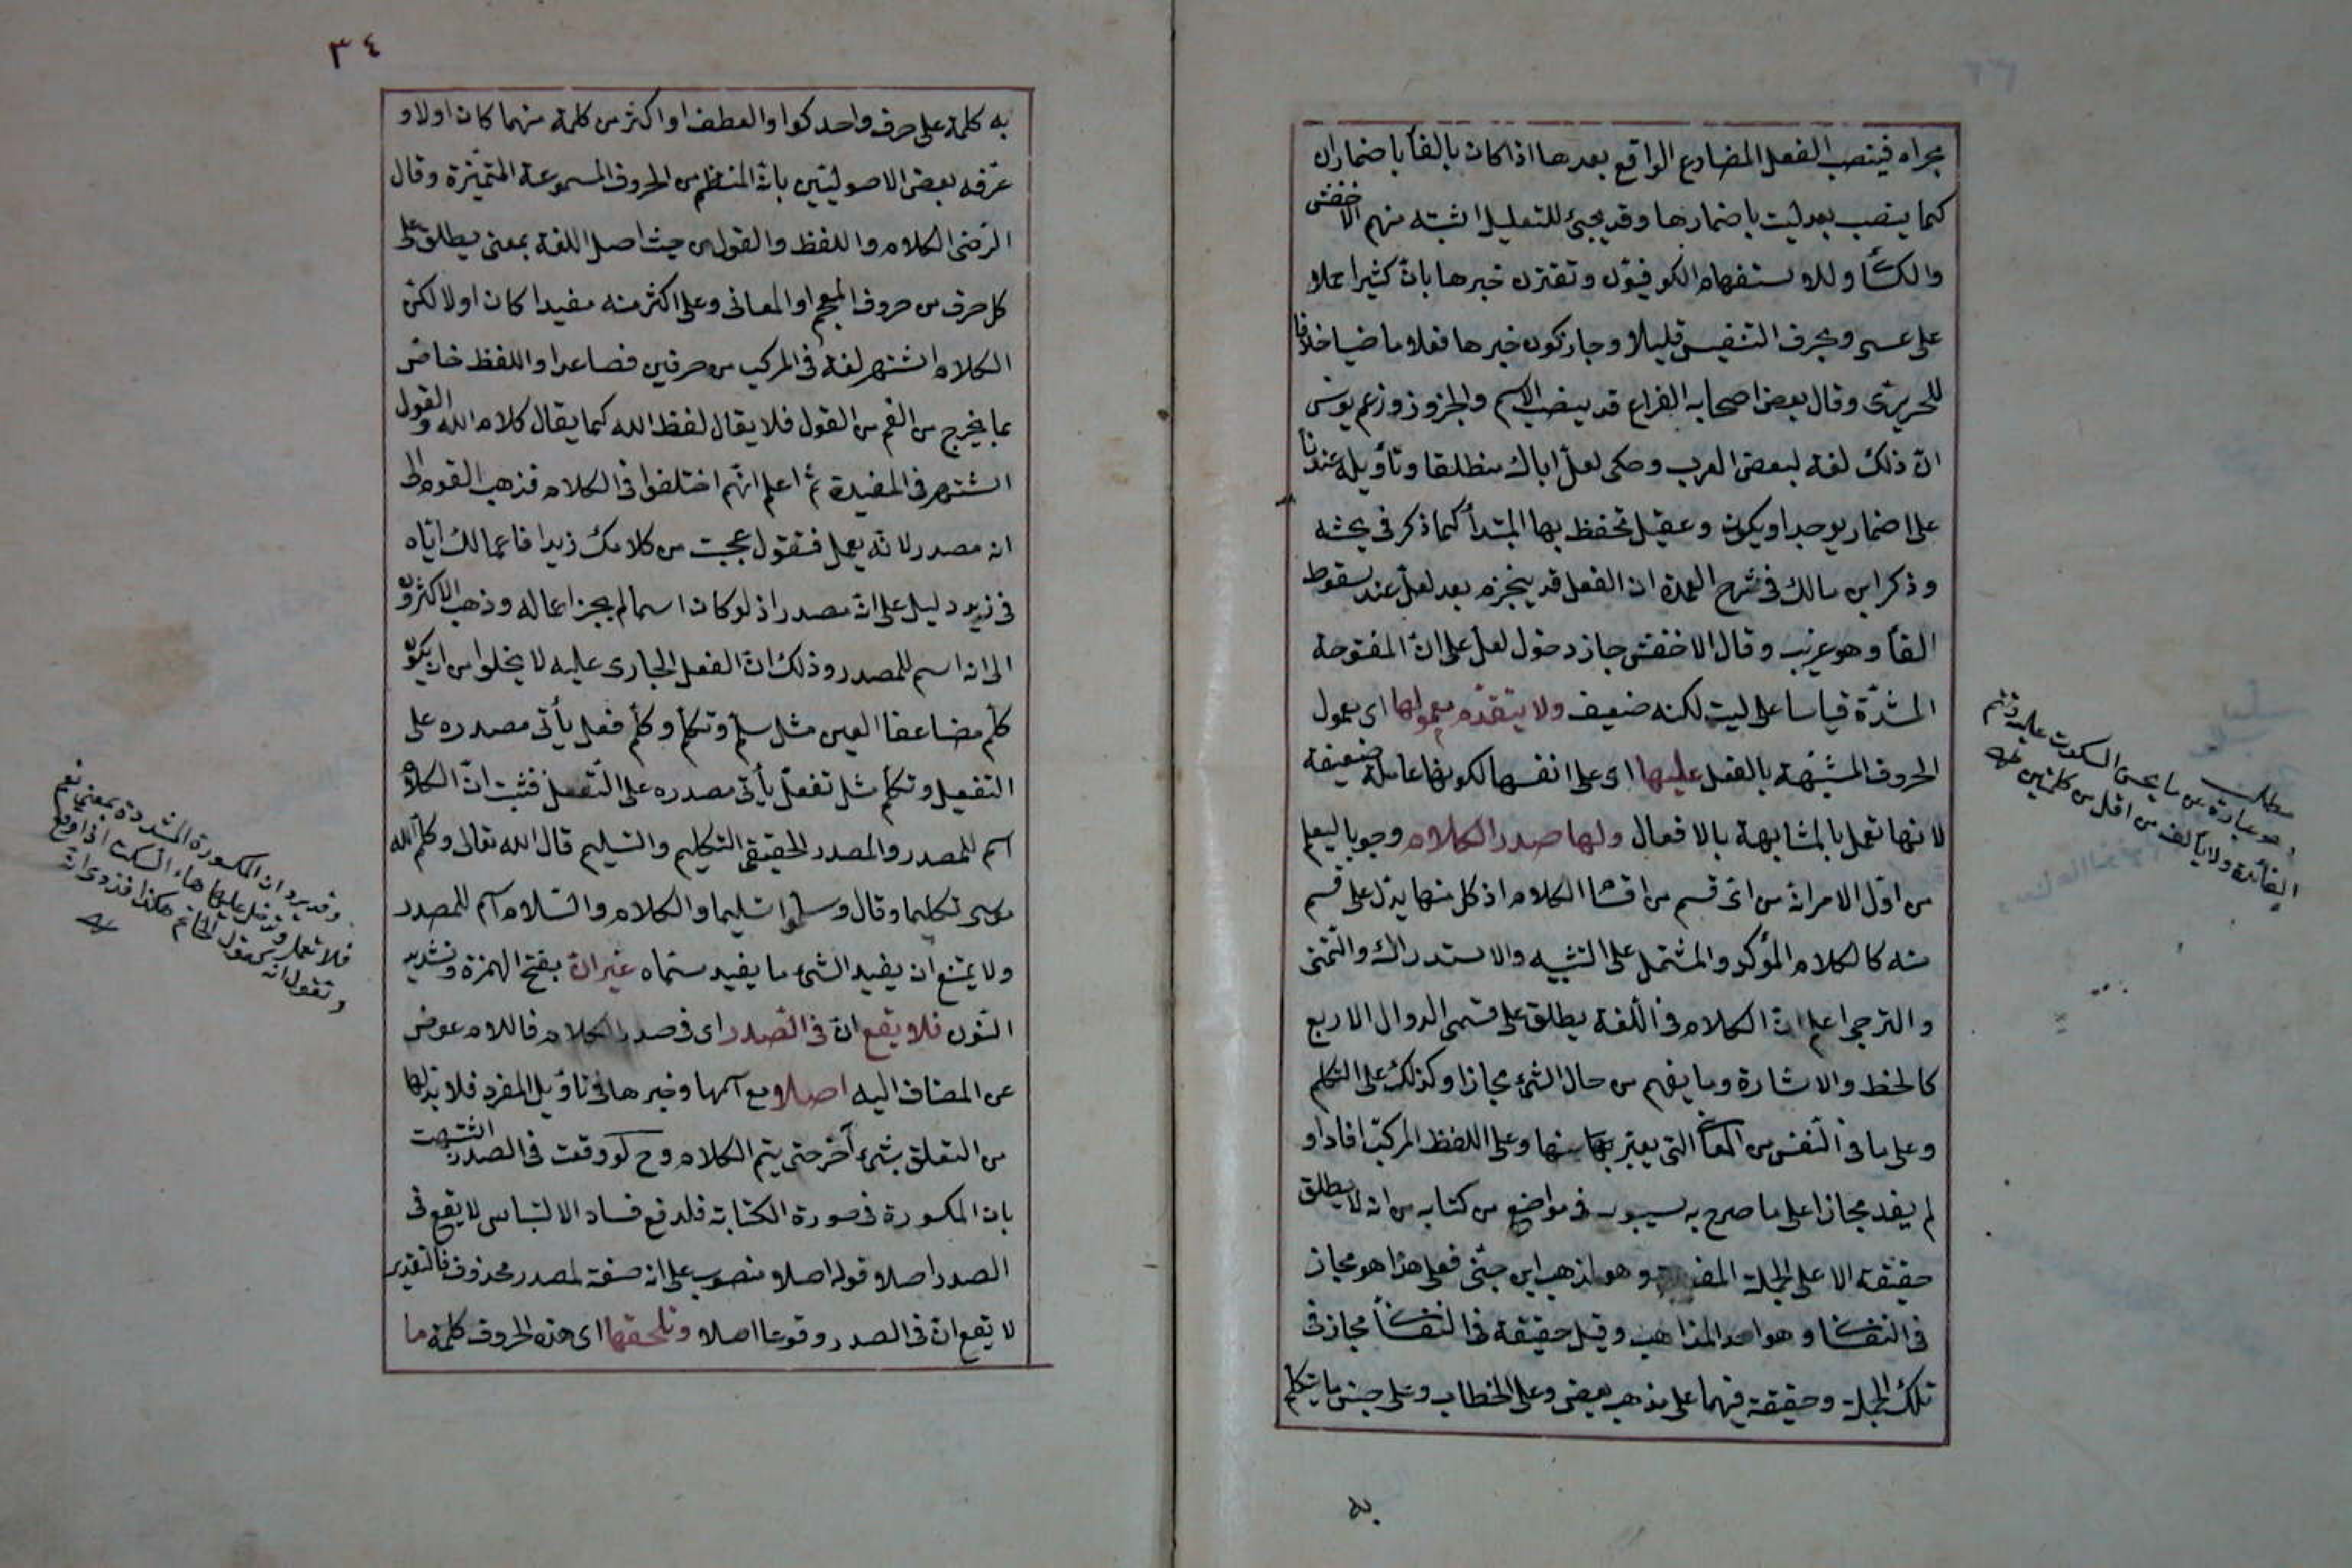 مجراه فينصب الفعل المضارع الواقع بعدها اذا كان بالفآ باضمار ان
كما ينصب بعد ليت باضمارها وقد يجئ للتعليل اثبته منهم الاخفش
والكسآ وللاستفهام الكوفيون وتقترن خبرها بان كثيرا حملا
على عسى وبحرف التنفيس قليلا وجاز كون خبرها فعلا ماضيا خلافا
للحريرى وقال بعض اصحاب الفراء قد ينصب الاسم والجزو وزعم يونس
انّ ذلك لغة لبعض العرب وحكى لعلّ اباك منطلقا وتأويله عندنا
على اضمار يوجد او يكون وعقيل تخفظ بها المبتدأ كما ذكر فى بحثه
وذكر ابن مالك فى شرح العمدة ان الفعل قد ينجزم بعد لعل عند سقوط
الفآ وهو غريب وقال الاخفش جاز دخول لعل على انّ المفتوحة
المشدّة قياسا على ليت لكنه ضعيف ولا يتقدّم معمولها اى معمول
الحروف المشبّهة بالفعل عليها اى على انفسها لكونها عاملة ضعيفة
لانها تعمل بالمشابهة بالافعال ولها صدر الكلام وجوبا ليعلم
من اول الامر انه من اى قسم من اقسا الكلام اذ كل منها يدل على قسم
منه كالكلام المؤكد والمشتمل على التشبيه والاستدراك والتمنى
والترجى اعلم انّ الكلام فى اللغة يطلق على قسمى الدوال الاربع
كالخط والاشارة وما يفهم من حال الشئ مجازا وكذلك على التكلم
وعلى ما فى النفس من المعانى التى يعبّر بها عنها وعلى اللفظ المركب افاد او
لم يفد مجازا على ما صرح به سيبويه فى مواضع من كتابه من انه لا يطلق
حقيقة الا على الجملة المفيدة وهو مذهب ابن جنّى فعلى هذا هو مجاز
فى النفسا وهو احد المذاهب وقيل حقيقة فى النفسا مجاز فى
تلك الجملة وحقيقة فيهما على مذهب بعض وعلى الخطاب وعلى جنس ما يتكلم
به
مطلب
وهو عبارة عن ما يحسن السكوت عليه وتتم
الفائدة ولا يتألف من اقل من كلمتين
٣٤
به كلمة على حرف واحد كواو العطف او اكثر من كلمة منهما كان اولا و
عرّفه بعض الاصوليّين بانّه المنتظم من الحروف المسموعة المتميّزة وقال
الرّضى الكلام واللفظ والقول من حيث اصل اللغة بمعنى يطلق على
كل حرف من حروف المعجم او المعانى وعلى اكثر منه مفيدا كان اولا لكنّ
الكلام اشتهر لغة فى المركب من حرفين فصاعدا واللفظ خاصّ
بما يخرج من الفم من القول فلا يقال لفظ الله كما يقال كلام الله والقول
اشتهر فى المفيدة ثم اعلم انّهم اختلفوا فى الكلام فذهب القوم الى
انه مصدر لانه يعمل فتقول عجبت من كلامك زيدا فاعمالك اياه
فى زيد دليل على انه مصدر اذ لو كان اسما لم يجز اعماله وذهب الاكثرون
الى انه اسم للمصدر وذلك انّ الفعل الجارى عليه لا يخلوا من ان يكون
كلّم مضاعفا العين مثل سلّم وتكلّم وكلّم فعل يأتى مصدره على
التفعيل وتكلّم مثل تفعّل يأتى مصدره على التّفعّل فثبت انّ الكلام
اسم للمصدر والمصدر الحقيقى التكليم والتسليم قال الله تعالى وكلّم الله
موسى تكليما وقال وسلموا تسليما والكلام والسّلام اسم للمصدر
ولا يمتنع ان يفيد الشئ ما يفيد مسمّاه غير انّ بفتح الهمزة وتشديد
النّون فلا يقع انّ فى الصّدر اى فى صدر الكلام فاللام عوض
عن المضاف اليه اصلا مع اسمها وخبرها فى تأويل المفرد فلا بدّ لها
من التعلق بشئ آخر حتى يتم الكلام وح لو وقعت فى الصدر اشتبهت
بان المكسورة فى صورة الكتابة فلدفع فساد الالتباس لا يقع فى
الصدر اصلا وقوله اصلا منصوب على انه صفة لمصدر محذوف فالتقدير
لا يقع انّ فى الصدر وقوعا اصلا وتلحقها اى هذه الحروف كلمة ما
وقد يرد ان المكسورة المشددة بمعنى نعم
فلا تعمل وتدخل عليها هاء السكت
وتقول انه كقول